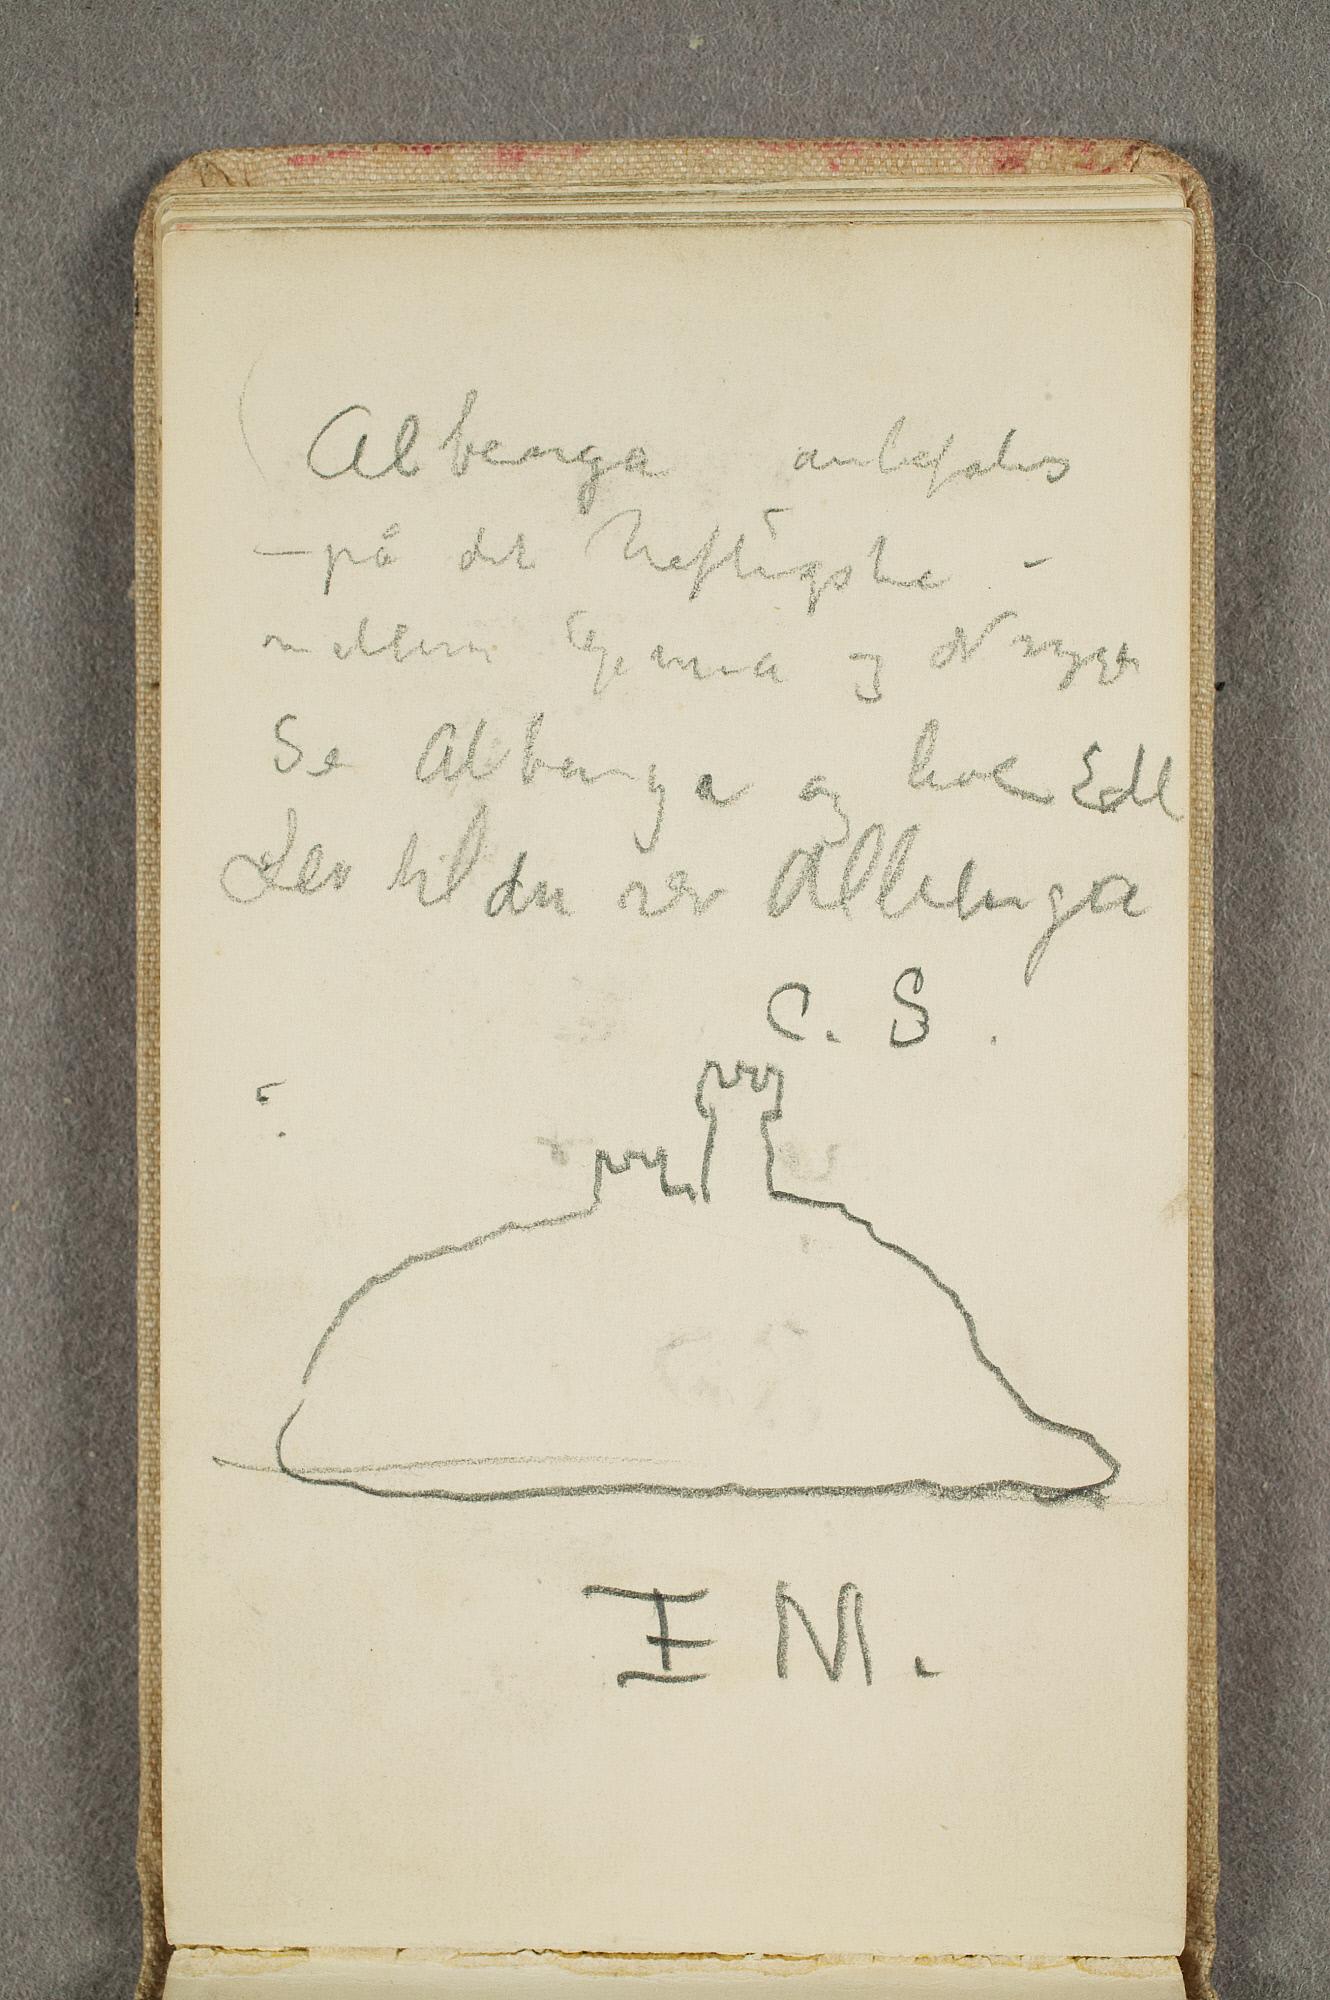 Albenga anbefales
– på det heftigste –
mellem Genua og
Se Albenga og
Lev til du ser Allbenga
C. S.
E M.